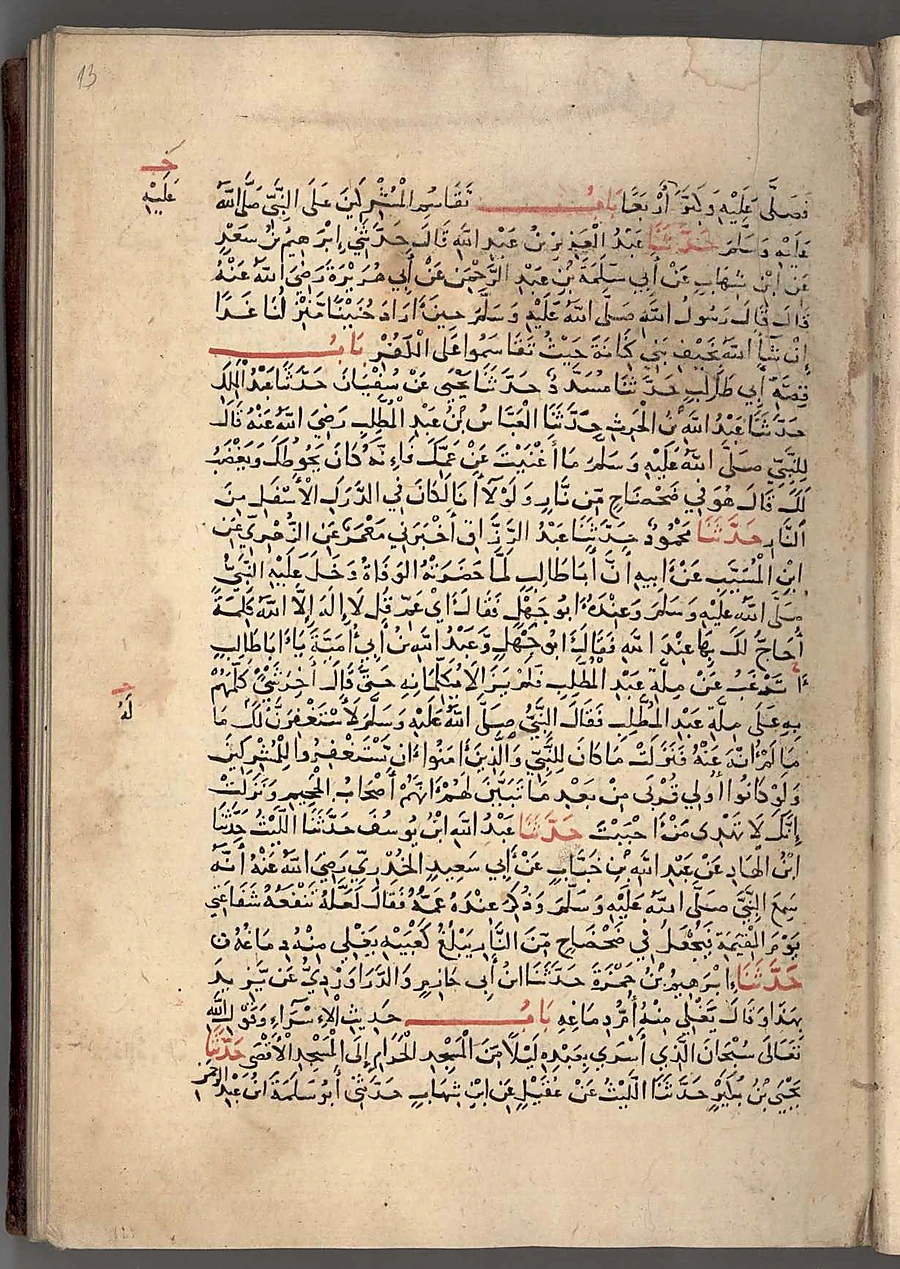 13
حـ
عَلَيْهِ
فَصَلَّى عَلَيْهِ وَكَبَّرَ أَرْبَعًا بَابُ تَقَاسُمِ الْمُشْرِكِينَ عَلَى النَّبِيِّ صَلَّى اللَّهُ
عَلَيْهِ وَسَلَّمَ حَدَّثَنَا عَبْدُ الْعَزِيزِ بْنُ عَبْدِ اللَّهِ قَالَ حَدَّثَنِي إِبْرَهِيمُ بْنُ سَعْدٍ
عَنْ ابْنِ شِهَابٍ عَنْ أَبِي سَلَمَةَ بْنِ عَبْدِ الرَّحْمَنِ عَنْ أَبِي هُرَيْرَةَ رَضِيَ اللَّهُ عَنْهُ
قَالَ قَالَ رَسُولُ اللَّهِ صَلَّى اللَّهُ عَلَيْهِ وَسَلَّمَ حِينَ أَرَادَ حُنَيْنًا مَنْزِلُنَا غَدًا
إِنْ شَاءَ اللَّهُ بِخَيْفِ بَنِي كِنَانَةَ حَيْثُ تَقَاسَمُوا عَلَى الْكُفْرِ بَابُ
قِصَّةِ أَبِي طَالِبٍ حَدَّثَنَا مُسَدَّدٌ حَدَّثَنَا يَحْيَى عَنْ سُفْيَانَ حَدَّثَنَا عَبْدُ الْمَلِكِ
حَدَّثَنَا عَبْدُ اللَّهِ بْنُ الْحَرِثِ حَدَّثَنَا الْعَبَّاسُ بْنُ عَبْدِ الْمُطَّلِبِ رَضِيَ اللَّهُ عَنْهُ قَالَ
لِلنَّبِيِّ صَلَّى اللَّهُ عَلَيْهِ وَسَلَّمَ مَا أَغْنَيْتَ عَنْ عَمِّكَ فَإِنَّهُ كَانَ يَحُوطُكَ وَيَغْضَبُ
لَكَ قَالَ هُوَ فِي ضَحْضَاحٍ مِّن نَّارٍ وَلَوْلَا أَنَا لَكَانَ فِي الدَّرَكِ الْأَسْفَلِ مِنَ
النَّارِ حَدَّثَنَا مَحْمُودٌ حَدَّثَنَا عَبْدُ الرَّزَّاقِ أَخْبَرَنِي مَعْمَرٌ عَنِ الزُّهْرِيِّ عَنِ
ابْنِ الْمُسَيَّبِ عَنْ أَبِيهِ أَنَّ أَبَا طَالِبٍ لَمَّا حَضَرَتْهُ الْوَفَاةُ دَخَلَ عَلَيْهِ النَّبِيُّ
صَلَّى اللَّهُ عَلَيْهِ وَسَلَّمَ وَعِنْدَهُ أَبُو جَهْلٍ فَقَالَ أَيْ عَمِّ قُل لَّا إِلَهَ إِلَّا اللَّهُ كَلِمَةً
أُحَاجُّ لَكَ بِهَا عِنْدَ اللَّهِ فَقَالَ أَبُو جَهْلٍ وَعَبْدُ اللَّهِ بْنُ أَبِي أُمَيَّةَ يَا أَبَا طَالِبٍ
أَ تَرْغَبُ عَنْ مِلَّةِ عَبْدِ الْمُطَّلِبِ فَلَمْ يَزَالَا يُكَلِّمَانِهِ حَتَّى قَالَ آخِرَ شَيْءٍ كَلَّمَهُمْ
حـ
لَهُ
بِهِ عَلَى مِلَّةِ عَبْدِ الْمُطَّلِبِ فَقَالَ النَّبِيُّ صَلَّى اللَّهُ عَلَيْهِ وَسَلَّمَ لَأَسْتَغْفِرَنَّ لَكَ مَا
مَا لَمْ أُنْهَ عَنْهُ فَنَزَلَتْ مَا كَانَ لِلنَّبِيِّ وَالَّذِينَ آمَنُوا أَن يَّسْتَغْفِرُوا لِلْمُشْرِكِينَ
وَلَوْ كَانُوا أُولِي قُرْبَى مِنْ بَعْدِ مَا تَبَيَّنَ لَهُمْ أَنَّهُمْ أَصْحَابُ الْجَحِيمِ وَنَزَلَتْ
إِنَّكَ لَا تَهْدِي مَنْ أَحْبَبْتَ حَدَّثَنَا عَبْدُ اللَّهِ ابْنُ يُوسُفَ حَدَّثَنَا اللَّيْثُ حَدَّثَنَا
ابْنُ الْهَادِ عَنْ عَبْدِ اللَّهِ بْنِ خَبَّابٍ عَنْ أَبِي سَعِيدٍ الْخُدْرِيِّ رَضِيَ اللَّهُ عَنْهُ أَنَّهُ
سَمِعَ النَّبِيَّ صَلَّى اللَّهُ عَلَيْهِ وَسَلَّمَ وَذُكِرَ عِنْدَهُ عَمُّهُ فَقَالَ لَعَلَّهُ تَنْفَعُهُ شَفَاعَتِي
يَوْمَ الْقِيَمَةِ فَيُجْعَلُ فِي ضَحْضَاحٍ مِّنَ النَّارِ يَبْلُغُ كَعْبَيْهِ يَغْلِي مِنْهُ دِمَاغُهُ
حَدَّثَنَا إِبْرَهِيمُ بْنُ حَمْزَةَ حَدَّثَنَا ابْنُ أَبِي حَازِمٍ وَالدَّرَاوَرْدِيُّ عَنْ يَّزِيدَ
بِهَذَا وَقَالَ تَغْلِي مِنْهُ أُمُّ دِمَاغِهِ بَابُ حَدِيثِ الْإِسْرَاءِ وَقَوْلِ اللَّهِ
تَعَالَى سُبْحَانَ الَّذِي أَسْرَى بِعَبْدِهِ لَيْلًا مِّنَ الْمَسْجِدِ الْحَرَامِ إِلَى الْمَسْجِدِ الْأَقْصَى حَدَّثَنَا
يَحْيَى بْنُ بُكَيْرٍ حَدَّثَنَا اللَّيْثُ عَنْ عُقَيْلٍ عَنِ ابْنِ شِهَابٍ حَدَّثَنِي أَبُو سَلَمَةَ ابْنُ عَبْدِ الرَّحْمَنِ